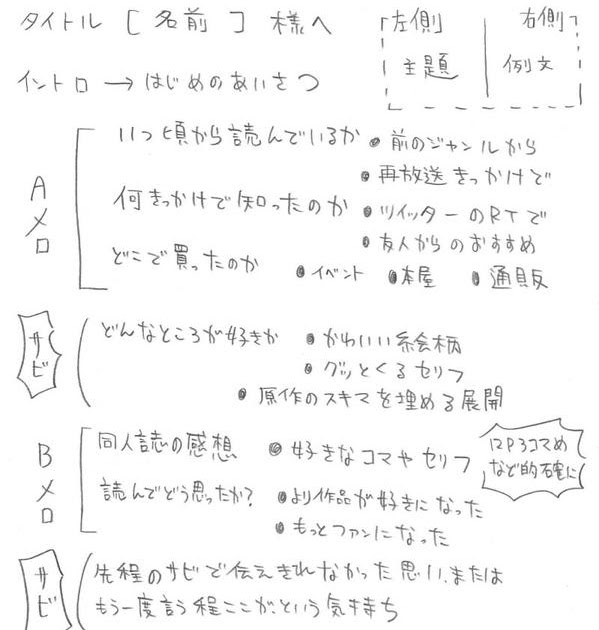 タイトル [ 名前 ] 様へ
左側 右側
主題 例文
イントロ → はじめのあいさつ
Aメロ
いつ頃から読んでいるか ●前のジャンルから
●再放送きっかけで
何きっかけで知ったのか ●ツイッターのRTで
●友人からのおすすめ
どこで買ったのか ●イベント ●本屋 ●通販
サビ
どんなところが好きか ●かわいい絵柄
●グッとくるセリフ
●原作のスキマを埋める展開
Bメロ
同人誌の感想 ●好きなコマやセリフ
12P3コマめ
など的確に
読んでどう思ったか? ●より作品が好きになった
●もっとファンになった
サビ
先程のサビで伝えきれなかった思い、または
もう一度言う程ここが、という気持ち